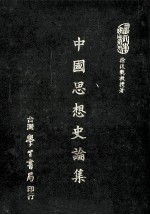 徐復觀教授著
中國思想史論集
台灣學生書局印訂